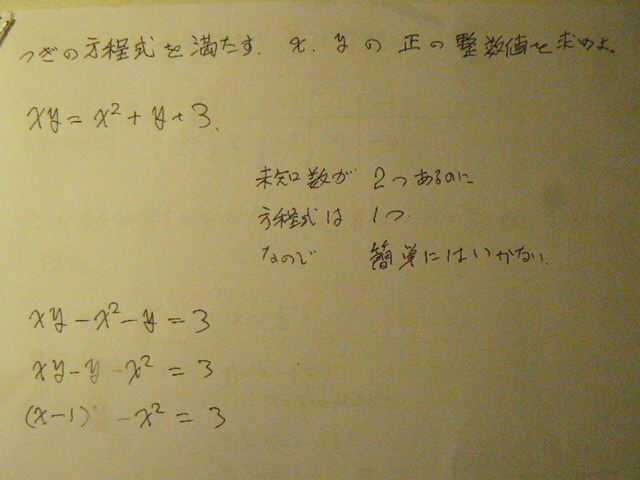 つぎの方程式を満たす. x. yの 正の 整数値を求めよ。
xy = x² + y + 3.
未知数が 2つあるのに
方程式は 1つ.
なので 簡単にはいかない
xy - x² - y = 3
xy - y - x² = 3
(x-1) - x² = 3